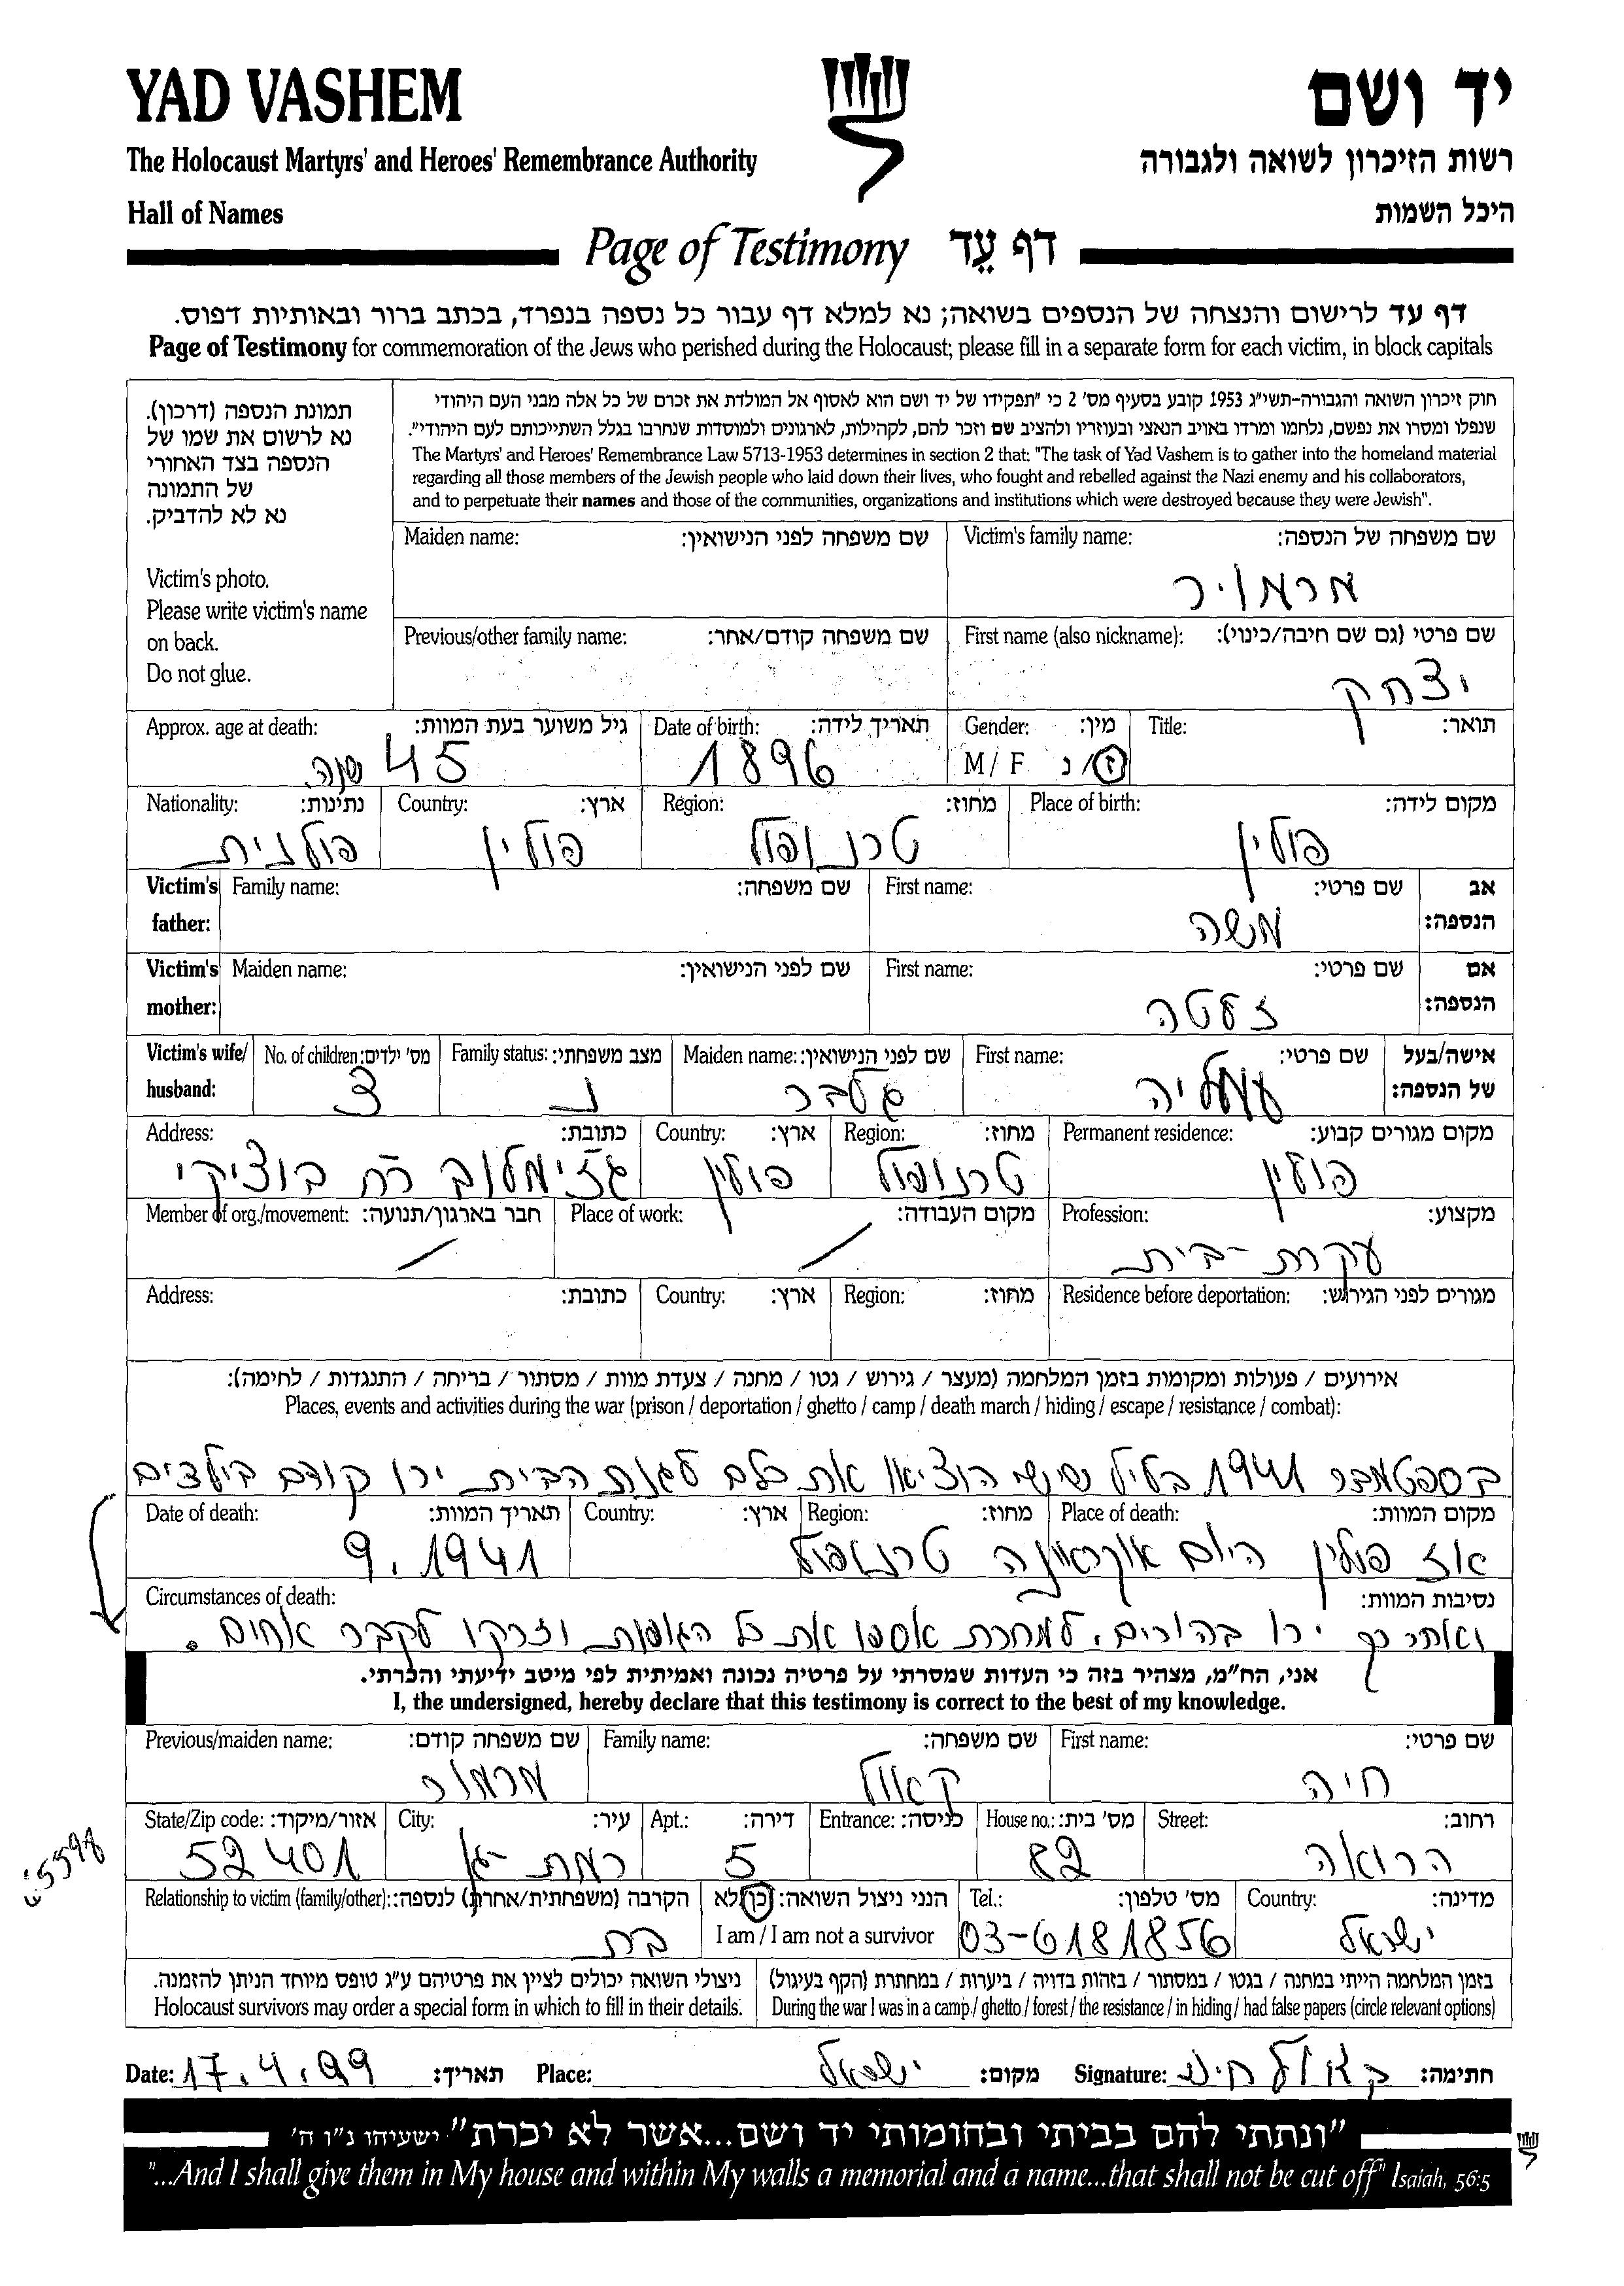 YAD VASHEM
יד ושם
The Holocaust Martyrs' and Heroes' Remembrance Authority
רשות הזיכרון לשואה ולגבורה
Hall of Names
היכל השמות
Page of Testimony דף עֵד
דף עד לרישום והנצחה של הנספים בשואה; נא למלא דף עבור כל נספה בנפרד, בכתב ברור ובאותיות דפוס.
Page of Testimony for commemoration of the Jews who perished during the Holocaust; please fill in a separate form for each victim, in block capitals
תמונת הנספה (דרכון).
נא לרשום את שמו של
הנספה בצד האחורי
של התמונה
נא לא להדביק.
Victim's photo.
Please write victim's name
on back.
Do not glue.
חוק זיכרון השואה והגבורה-תשי"ג 1953 קובע בסעיף מס' 2 כי "תפקידו של יד ושם הוא לאסוף אל המולדת את זכרם של כל אלה מבני העם היהודי
שנפלו ומסרו את נפשם, נלחמו ומרדו באויב הנאצי ובעוזריו ולהציב שם וזכר להם, לקהילות, לארגונים ולמוסדות שנחרבו בגלל השתייכותם לעם היהודי".
The Martyrs' and Heroes' Remembrance Law 5713-1953 determines in section 2 that: "The task of Yad Vashem is to gather into the homeland material
regarding all those members of the Jewish people who laid down their lives, who fought and rebelled against the Nazi enemy and his collaborators,
and to perpetuate their names and those of the communities, organizations and institutions which were destroyed because they were Jewish".
Victim's family name: שם משפחה של הנספה:
Maiden name: שם משפחה לפני הנישואין:
First name (also nickname): שם פרטי (גם שם חיבה/כינוי):
Previous/other family name: שם משפחה קודם/אחר:
יצחק
Title: תואר: Gender: מין: Date of birth: תאריך לידה: Approx. age at death: גיל משוער בעת המוות:
M / F ז/נ 1896 45 שנה
Place of birth: מקום לידה: Region: מחוז: Country: ארץ: Nationality: נתינות:
פולין טרנופול פולין פולנית
Victim's father: אב הנספה: First name: שם פרטי: Family name: שם משפחה:
משה
Victim's mother: אם הנספה: First name: שם פרטי: Maiden name: שם לפני הנישואין:
זלטה
Victim's wife/ husband: אישה/בעל של הנספה: First name: שם פרטי: Maiden name: שם לפני הנישואין: Family status: מצב משפחתי: No. of children: מס' ילדים:
עמליה גלבר נ 3
Permanent residence: מקום מגורים קבוע: Region: מחוז: Country: ארץ: Address: כתובת:
פולין טרנופול פולין
Profession: מקצוע: Place of work: מקום העבודה: Member of org./movement: חבר בארגון/תנועה:
עקרת-בית / /
Residence before deportation: מגורים לפני הגירוש: Region: מחוז: Country: ארץ: Address: כתובת:
אירועים / פעולות ומקומות בזמן המלחמה (מעצר / גירוש / גטו / מחנה / צעדת מוות / מסתור / בריחה / התנגדות / לחימה):
Places, events and activities during the war (prison / deportation / ghetto / camp / death march / hiding / escape / resistance / combat):
בספטמבר 1941 בליל שישי הוציאו את כלם לגנות הבית ירו קודם בילדים
Place of death: מקום המוות: Region: מחוז: Country: ארץ: Date of death: תאריך המוות:
אז פולין היום אוקראינה טרנופול 9.1941
Circumstances of death: נסיבות המוות:
ואחר כך ירו בהורים. למחרת אספו את כל הגופות וזרקו לקבר אחים.
אני, הח"מ, מצהיר בזה כי העדות שמסרתי על פרטיה נכונה ואמיתית לפי מיטב ידיעתי והכרתי.
I, the undersigned, hereby declare that this testimony is correct to the best of my knowledge.
First name: שם פרטי: Family name: שם משפחה: Previous/maiden name: שם משפחה קודם:
חיה
Street: רחוב: House no.: מס' בית: Entrance: כניסה: Apt.: דירה: City: עיר: State/Zip code: אזור/מיקוד:
הרואה 82 5 רמת-גן 52401
Country: מדינה: Tel.: מס' טלפון: הנני ניצול השואה: כן/לא Relationship to victim (family/other): הקרבה (משפחתית/אחרת) לנספה:
ישראל 03-6181856 I am / I am not a survivor בת
בזמן המלחמה הייתי במחנה / בגטו / במסתור / בזהות בדויה / ביערות / במחתרת (הקף בעיגול)
During the war I was in a camp / ghetto / forest / the resistance / in hiding / had false papers (circle relevant options)
ניצולי השואה יכולים לציין את פרטיהם ע"ג טופס מיוחד הניתן להזמנה.
Holocaust survivors may order a special form in which to fill in their details.
Date: 17.4.99 תאריך: Place: ישראל מקום: Signature: חתימה:
"ונתתי להם בביתי ובחומותי יד ושם...אשר לא יכרת" ישעיהו נ"ו ה'
"...And I shall give them in My house and within My walls a memorial and a name...that shall not be cut off" Isaiah, 56:5